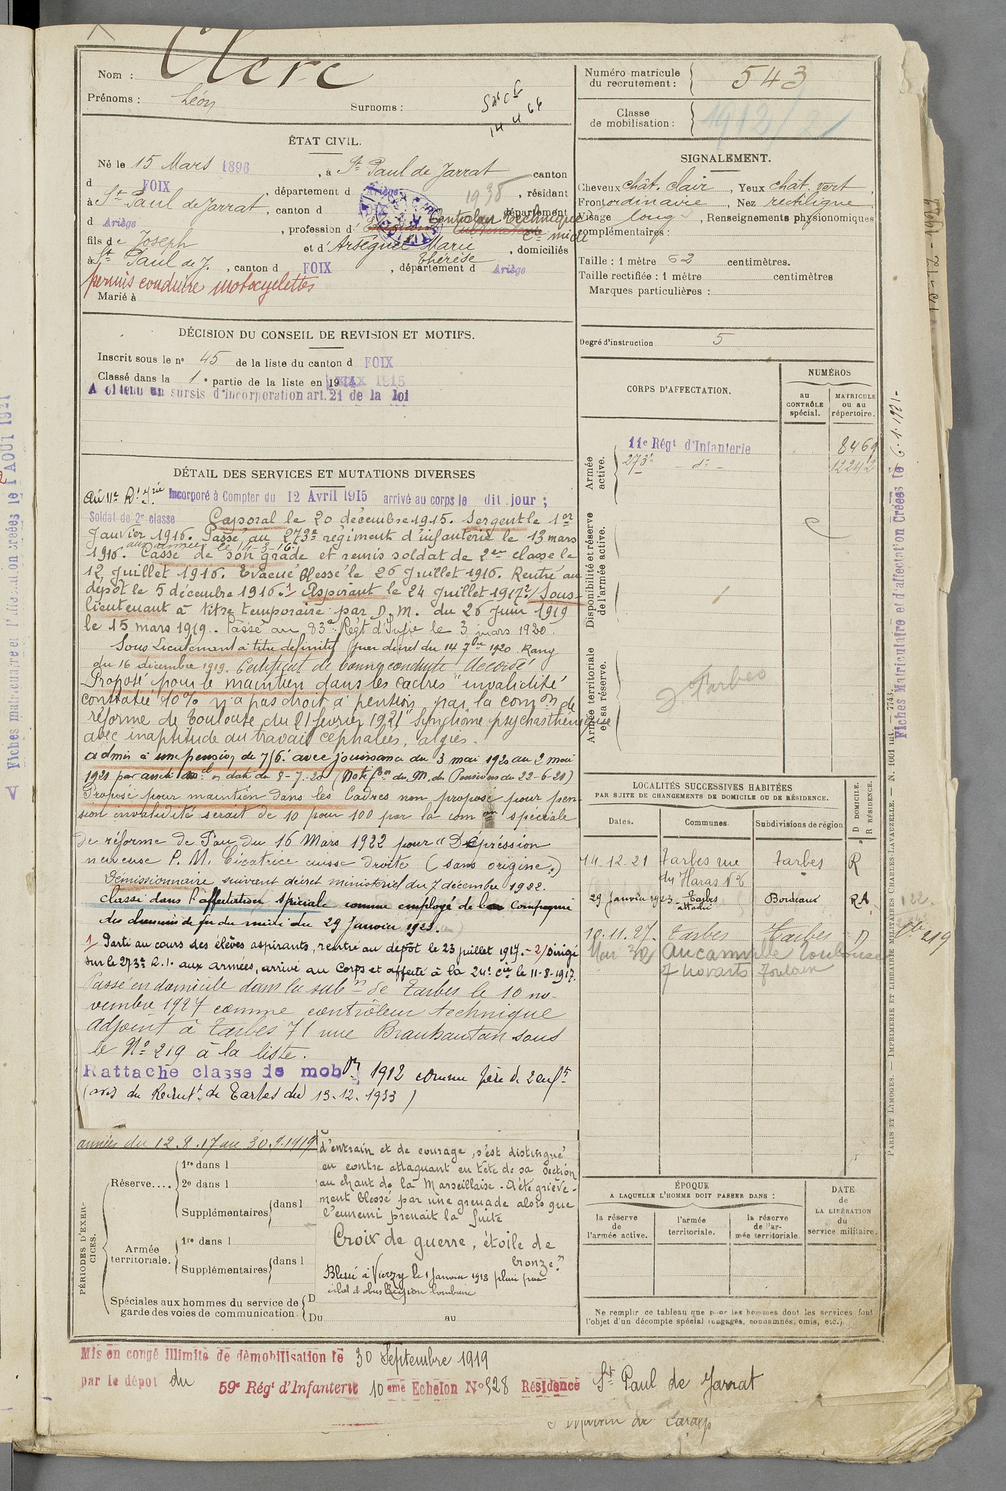 Nom : Clerc
Prénoms : Léon Surnoms :
ÉTAT CIVIL.
Né le 15 Mars 1896, à St Paul de Jarrat canton
d FOIX, département d Ariège, résidant
à St Paul de Jarrat, canton d département
d Ariège, profession d Controleur technique
Cie midi
fils de Joseph et d'Arseguel Marie Thérèse, domiciliés
à St Paul de J., canton d FOIX, département d Ariège
permis conduire motocyclettes
Marié à
DÉCISION DU CONSEIL DE REVISION ET MOTIFS.
Inscrit sous le n° 45 de la liste du canton d FOIX
Classé dans la 1e partie de la liste en 1915
A obtenu un sursis d'incorporation art. 21 de la loi
DÉTAIL DES SERVICES ET MUTATIONS DIVERSES
Au 11e Rt d'Irie Incorporé à Compter du 12 Avril 1915 arrivé au corps le dit jour ;
Soldat de 2e classe Caporal le 20 décembre 1915. Sergent le 1er
Janvier 1916. Passé au 273e régiment d'infanterie le 13 mars
aux armées le 14-3-16.
1916. Cassé de son grade et remis soldat de 2me classe le
12 Juillet 1916. Evacué blessé le 26 Juillet 1916. Rentré au
dépôt le 5 décembre 1916. 1/ Aspirant le 24 Juillet 1917 2/ Sous-
lieutenant à titre temporaire par D.M. du 26 Juin 1919
le 15 mars 1919. Passé au 83e Régt d'Infie le 3 mars 1920.
Sous Lieutenant à titre définitif par décret du 14 7bre 1920 Rang
du 16 décembre 1919. Certificat de bonne conduite "Accordé"
Proposé pour le maintien dans les cadres "invalidité
constatée 10% n'a pas droit à pension, par la comon de
réforme de Toulouse du 21 février 1921 "Syndrome psychasthénique
avec inaptitude au travail, céphalées, algies.
Admis à une pension de 716f. avec jouissance du 3 mai 1920 au 2 mai
1921 par arrêté en date du 8-7-20 (Notifon du M. des Pensions du 22-6-20)
Proposé pour maintien dans les Cadres non proposé pour pen
sion invalidité serait de 10 pour 100 par la comon spéciale
de réforme de Pau du 16 Mars 1922 pour "Dépression
nerveuse P. M. Cicatrice cuisse droite (sans origine.)
Démissionnaire suivant décret ministériel du 7 décembre 1922.
Classé dans l'affectation spéciale comme employé de la Compagnie
des chemins de fer du midi du 29 Janvier 1923.
1/ Parti au cours des élèves aspirants, rentré au dépôt le 23 juillet 1917. - 2/ Dirigé
sur le 273e R.I. aux armées, arrivé au Corps et affecté à la 24e Cie le 11-8-1917.
Passé en domicile dans la subon de Tarbes le 10 no-
vembre 1927 comme contrôleur technique
adjoint à Tarbes 71 rue Brauhauban sous
le N° 219 à la liste.
Rattaché classe de mobon 1912 comme père de 2 enfts
(avis du Recrutt de Tarbes du 13.12.1933)
armées du 12.8.17 au 30.9.1919
d'entrain et de courage, s'est distingué
en contre attaquant en tête de sa section
au chant de la Marseillaise. A été griève-
ment blessé par une grenade alors que
l'ennemi prenait la fuite
Croix de guerre, étoile de
bronze."
Blessé à Vierzy le 1 Janvier 1918 plaie par
éclat d'obus Région lombaire
PÉRIODES D'EXERCICES.
Réserve.... 1re dans l
2e dans l
Supplémentaires dans l
Armée territoriale. 1re dans l
Supplémentaires dans l
Spéciales aux hommes du service de garde des voies de communication. D
Du au
Mis en congé illimité de démobilisation le 30 Septembre 1919
par le dépôt du 59e Régt d'Infanterie 10eme Echelon N° 928 Résidence St Paul de Jarrat
Numéro matricule du recrutement : 543
Classe de mobilisation : 1912
SIGNALEMENT.
Cheveux chât. clair, Yeux chât. vert,
Front ordinaire, Nez rectiligne
Visage long, Renseignements physionomiques
complémentaires :
Taille : 1 mètre 62 centimètres.
Taille rectifiée : 1 mètre centimètres
Marques particulières :
Degré d'instruction 5
CORPS D'AFFECTATION. NUMÉROS
au CONTRÔLE spécial. MATRICULE ou au répertoire.
Armée active.
11e Régt d'Infanterie 8469
273e - do -
Disponibilité et réserve de l'armée active.
Armée territoriale et sa réserve.
Tarbes
LOCALITÉS SUCCESSIVES HABITÉES
PAR SUITE DE CHANGEMENTS DE DOMICILE OU DE RÉSIDENCE.
Dates. Communes. Subdivisions de région. D DOMICILE. R RÉSIDENCE.
14.12.21 Tarbes rue du Haras N°6 Tarbes R
29 Janvier 1923 Bordeaux RA
10.11.27. Tarbes Tarbes D
219
ÉPOQUE
A LAQUELLE L'HOMME DOIT PASSER DANS :
la réserve de l'armée active. l'armée territoriale. la réserve de l'armée territoriale.
DATE de LA LIBÉRATION du service militaire.
Ne remplir ce tableau que pour les hommes dont les services font
l'objet d'un décompte spécial (engagés, condamnés, omis, etc.).
PARIS ET LIMOGES. — IMPRIMERIE ET LIBRAIRIE MILITAIRES CHARLES-LAVAUZELLE.
Fiches Matriculaire et d'affectation Créées le 6.1.1921-
Fiches matriculaire et d'affectation créées le 1 AOUT 1921